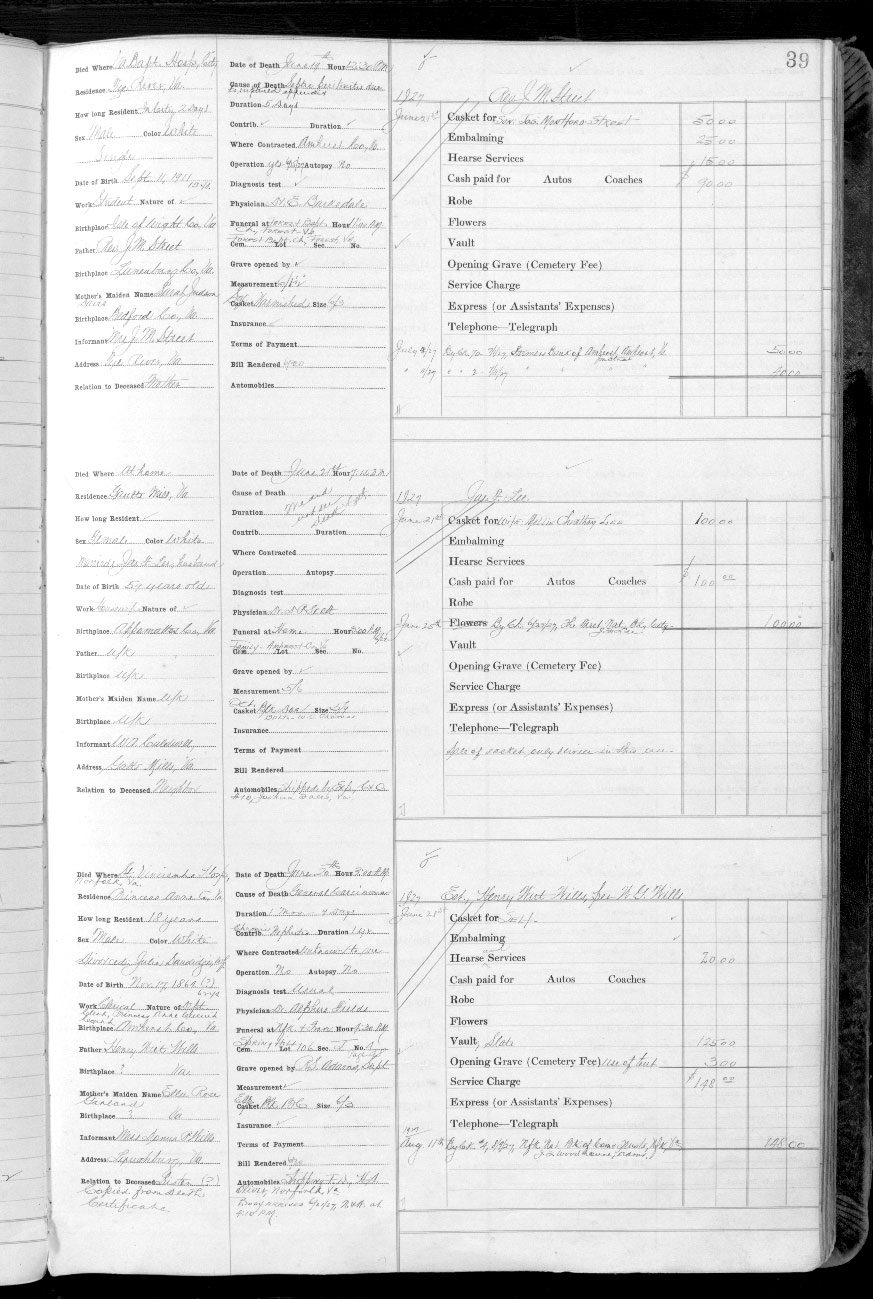 39
Died Where Va Bapt. Hosp, City
Residence Tye River, Va.
How long Resident In City 2 days
Sex Male Color White
Single
Date of Birth Sept. 11, 1911
Work Student Nature of
Birthplace Isle of Wight Co, Va
Father Rev J. M. Street
Birthplace Lunenburg Co, Va.
Mother's Maiden Name Sarah Judson
Davis
Birthplace Bedford Co, Va
Informant Mrs J. M. Street
Address Tye River, Va
Relation to Deceased Mother
Date of Death June 19th Hour 12:30 P.M
Cause of Death Septic Peritonitis due
to ruptured appendix
Duration 5 days
Contrib. Duration
Where Contracted Amherst Co, Va
Operation yes Autopsy No
Diagnosis test
Physician Barksdale
Funeral at Forest Bapt. Hour 11 00 AM
Ch, Forest, Va
Forest Bapt. Ch, Forest, Va
Cem. Lot Sec. No.
Grave opened by
Measurement
Casket Size 6/3
Insurance
Terms of Payment
Bill Rendered
Automobiles
1927 Rev J. M. Street
June 21st Casket for Son, Street 50 00
Embalming 25 00
Hearse Services 15 00
Cash paid for Autos Coaches $ 90 00
Robe
Flowers
Vault
Opening Grave (Cemetery Fee)
Service Charge
Express (or Assistants' Expenses)
Telephone—Telegraph
July By Ck Farmers Bank of Amherst, Amherst, Va 50 00
" " " " " " 40 00
Died Where At home
Residence Gautts Mill, Va
How long Resident
Sex Female Color White
Married, Jas. H Lee, husband
Date of Birth 54 years old
Work Housewife Nature of
Birthplace Appomattox Co, Va
Father U/K
Birthplace U/K
Mother's Maiden Name U/K
Birthplace U/K
Informant Caldwell
Address Mills, Va
Relation to Deceased Neighbor
Date of Death June 21st Hour
Cause of Death
Duration
Contrib. Duration
Where Contracted
Operation Autopsy
Diagnosis test
Physician Scott
Funeral at Home Hour 3:00 P.M.
Family - Amherst Co, Va
Cem. Lot Sec. No.
Grave opened by
Measurement 5/6
Casket Size 5/9
Insurance
Terms of Payment
Bill Rendered
Automobiles Shipped Exp, C & O
#10, Joshua Falls, Va
1927 Jas. H. Lee
June 21st Casket for wife Lee 100 00
Embalming
Hearse Services
Cash paid for Autos Coaches $ 100 00
Robe
June 25th Flowers By Ck 6/22/27, The First Nat. Bk, City 100 00
Vault
Opening Grave (Cemetery Fee)
Service Charge
Express (or Assistants' Expenses)
Telephone—Telegraph
Price of casket only service in this case
Died Where St. Vincents Hosp,
Norfolk, Va.
Residence Princess Anne Co, Va
How long Resident 18 years
Sex Male Color White
Divorced, Julia wife
Date of Birth Nov. 17, 1864 (?)
Work Clerical Nature of
Birthplace Amherst Co, Va
Father Henry Wert Wills
Birthplace ? Va.
Mother's Maiden Name Ella Rose
Garland
Birthplace ? Va
Informant Miss Wills
Address Lynchburg, Va
Relation to Deceased Sister (?)
Copied from death
certificate
Date of Death June 26th Hour
Cause of Death General Carcinoma
Duration 1 mos - days
Chronic
Contrib. Nephritis Duration 1 yr
Where Contracted Unknown to me
Operation No Autopsy No
Diagnosis test Usual
Physician Fields
Funeral at Hour P.M.
Spring Hill
Cem. Lot 106 Sec. I No.
Grave opened by R. S. Adams, Supt
Measurement
Casket Size 6/3
Insurance
Terms of Payment
Bill Rendered
Automobiles Shipping F. D., H. D.
Oliver, Norfolk, Va
Body arrived 6/27/27, N & W at
P.M.
1927 Est, Henry Wert Wills, per W. G. Wills
June 28th Casket for Self
Embalming
Hearse and Services 20 00
Cash paid for Autos Coaches
Robe
Flowers
Vault, Slate 125 00
Opening Grave (Cemetery Fee) Use of tent 3 00
Service Charge $ 148 00
Express (or Assistants' Expenses)
1927 Telephone—Telegraph
Aug. 11th By Ck Nfk. Nat. Bk of Com & Trusts, Nfk, Va 148 00
J. L. Woodhouse, Adm.